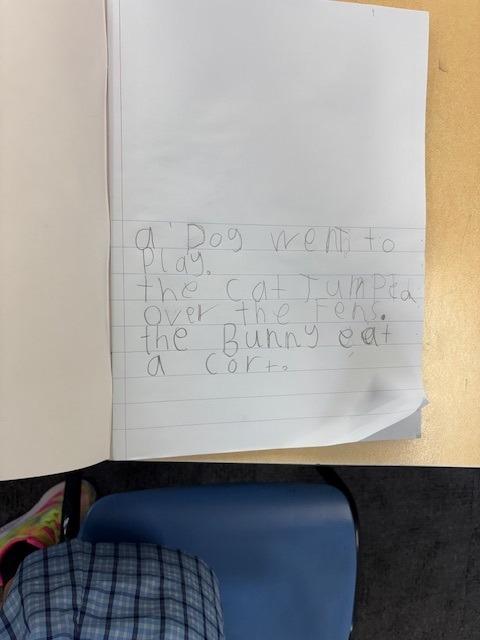 a Dog went to
Play.
the cat Jumped
over the Fens.
the Bunny eat
a cort.